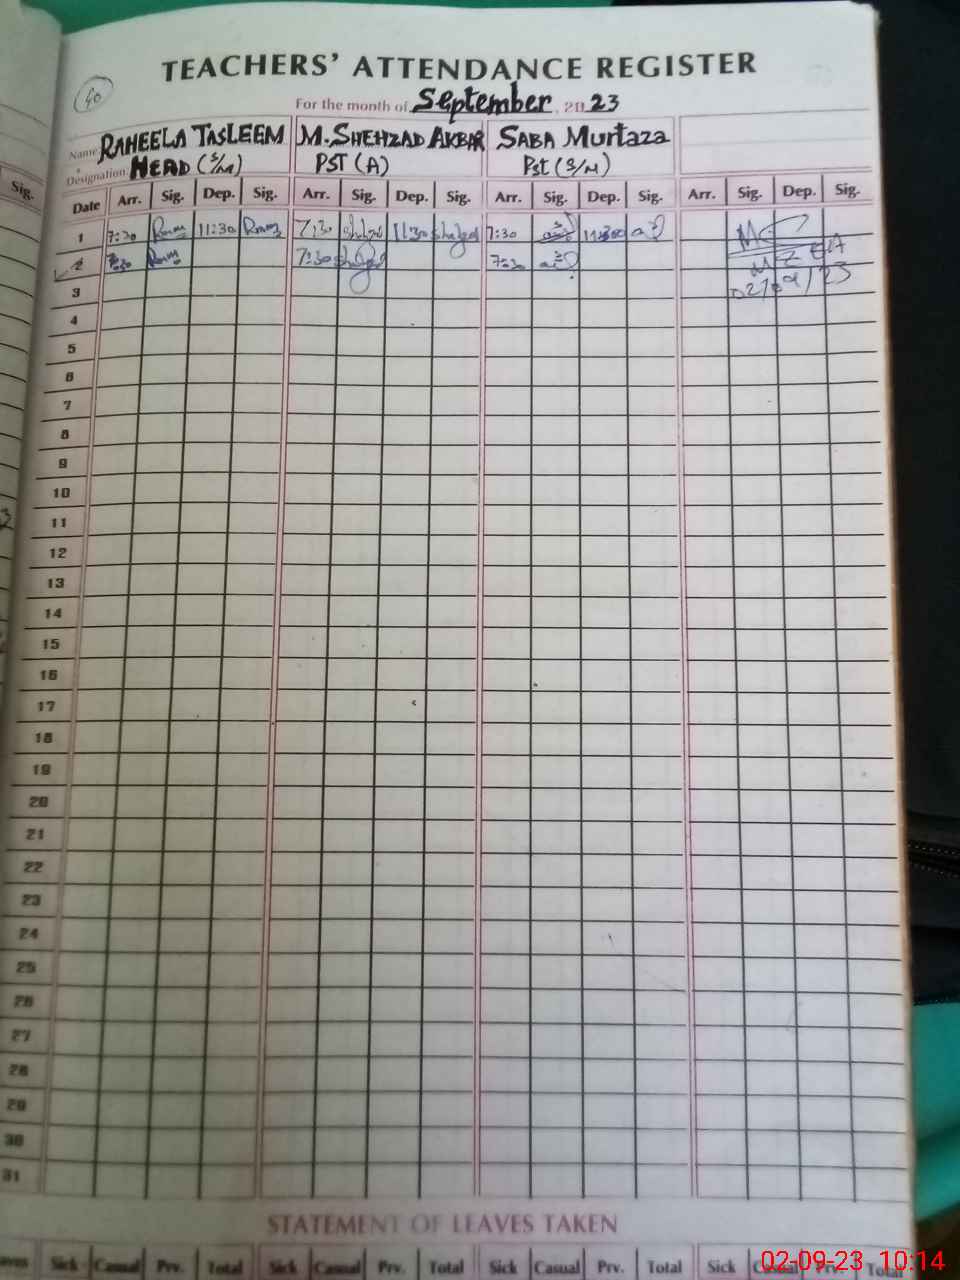 TEACHERS' ATTENDANCE REGISTER
40
For the month of September 2023
Name RAHEELA TASLEEM M. SHEHZAD AKBAR SABA Murtaza
Designation. HEAD (S/M) PST (A) Pst (S/M)
Sig.
Date Arr. Sig. Dep. Sig. Arr. Sig. Dep. Sig. Arr. Sig. Dep. Sig. Arr. Sig. Dep. Sig.
1 7:30 11:30 7:30 11:30 7:30
2 7:30 7:30 7:30
02/09/23
3
4
5
6
7
8
9
10
11
12
13
14
15
16
17
18
19
20
21
22
23
24
25
26
27
28
29
30
31
STATEMENT OF LEAVES TAKEN
Sick Casual Prv. Total Sick Casual Prv. Total Sick Casual Prv. Total Sick Casual Prv. Total
02-09-23 10:14